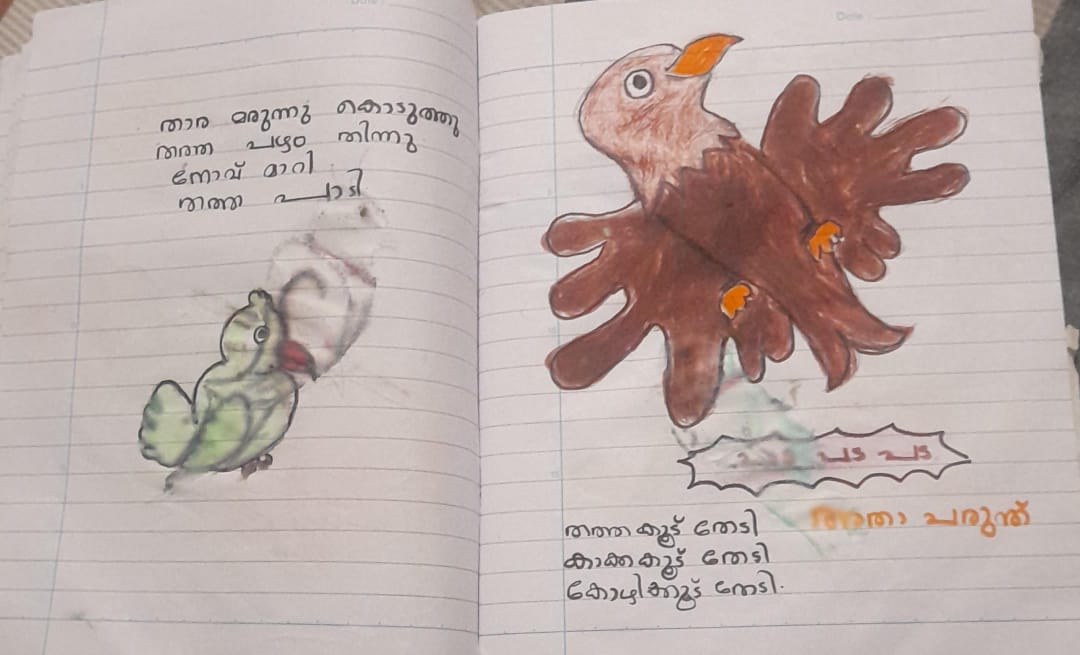 താര മരുന്നു കൊടുത്തു
തത്ത പഴം തിന്നു
നോവ് മാറി
തത്ത പാടി
Date
പട പട
അതാ പരുന്ത്
തത്ത കൂട് തേടി
കാക്ക കൂട് തേടി
കോഴിക്കൂട് തേടി.